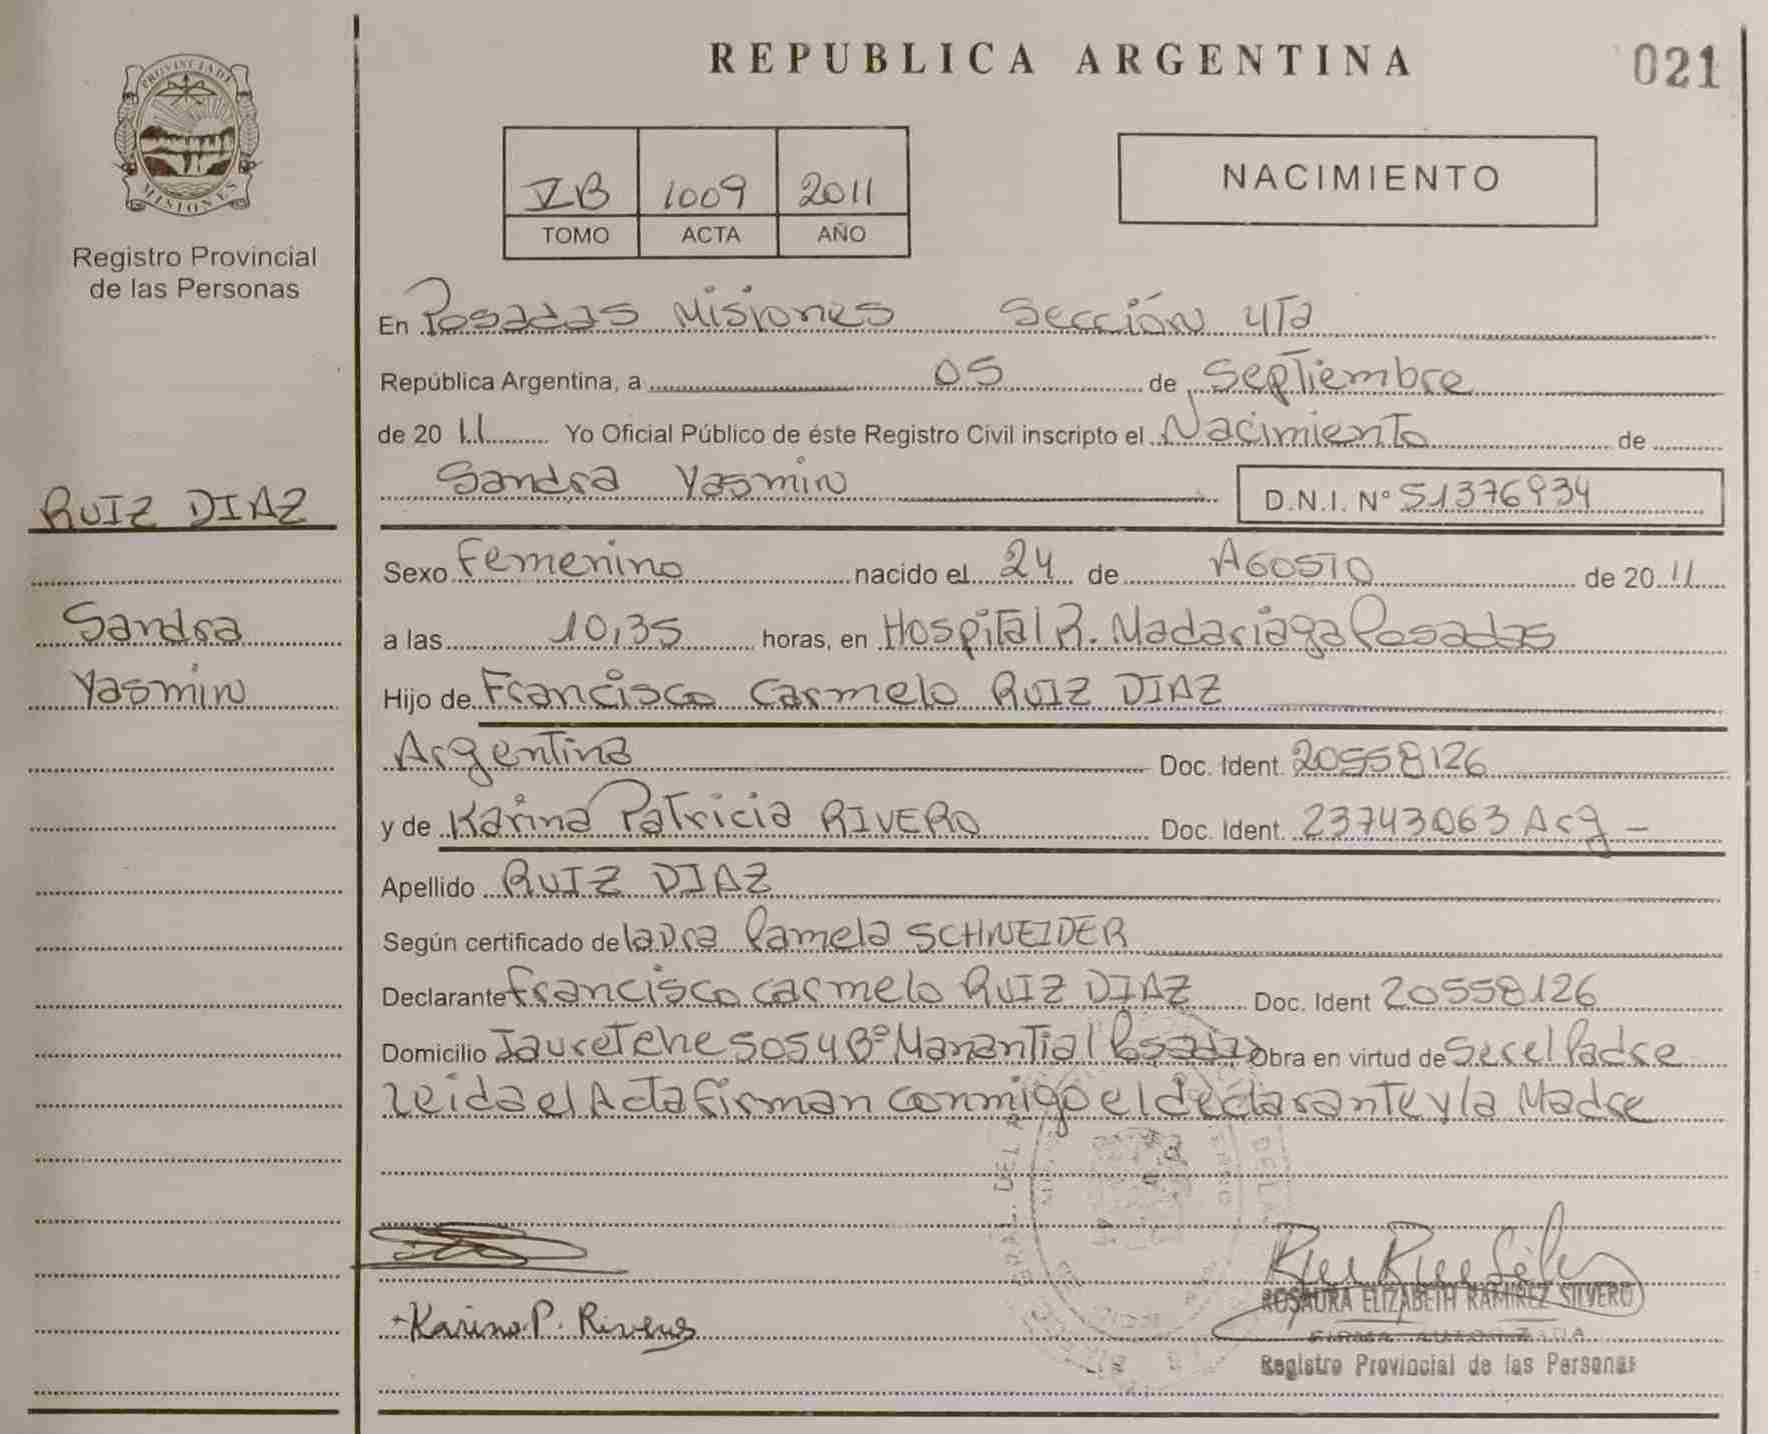 REPUBLICA ARGENTINA
021
PROVINCIA DE
MISIONES
Registro Provincial
de las Personas
VB 1009 2011
TOMO ACTA AÑO
NACIMIENTO
En Posadas Misiones Sección 4Ta
República Argentina, a 05 de Septiembre
de 20 11 Yo Oficial Público de éste Registro Civil inscripto el Nacimiento de
Sandra Yasmin D.N.I. Nº 51376934
RUIZ DIAZ
Sandra
Yasmin
Sexo Femenino nacido el 24 de AGOSTO de 20 11
a las 10,35 horas, en Hospital R. Madariaga Posadas
Hijo de Francisco Carmelo RUIZ DIAZ
Argentina Doc. Ident. 20558126
y de Karina Patricia RIVERO Doc. Ident. 23743063 Arg -
Apellido RUIZ DIAZ
Según certificado de Laura Pamela SCHNEIDER
Declarante Francisco Carmelo RUIZ DIAZ Doc. Ident 20558126
Domicilio Jauretche 5054 Bº Manantial Posadas Obra en virtud de Ser el Padre
Leida el Acta firman conmigo el declarante y la Madre
Karina P. Rivero
ROSAURA ELIZABETH RAMIREZ SILVERO
FIRMA AUTORIZADA
Registro Provincial de las Personas